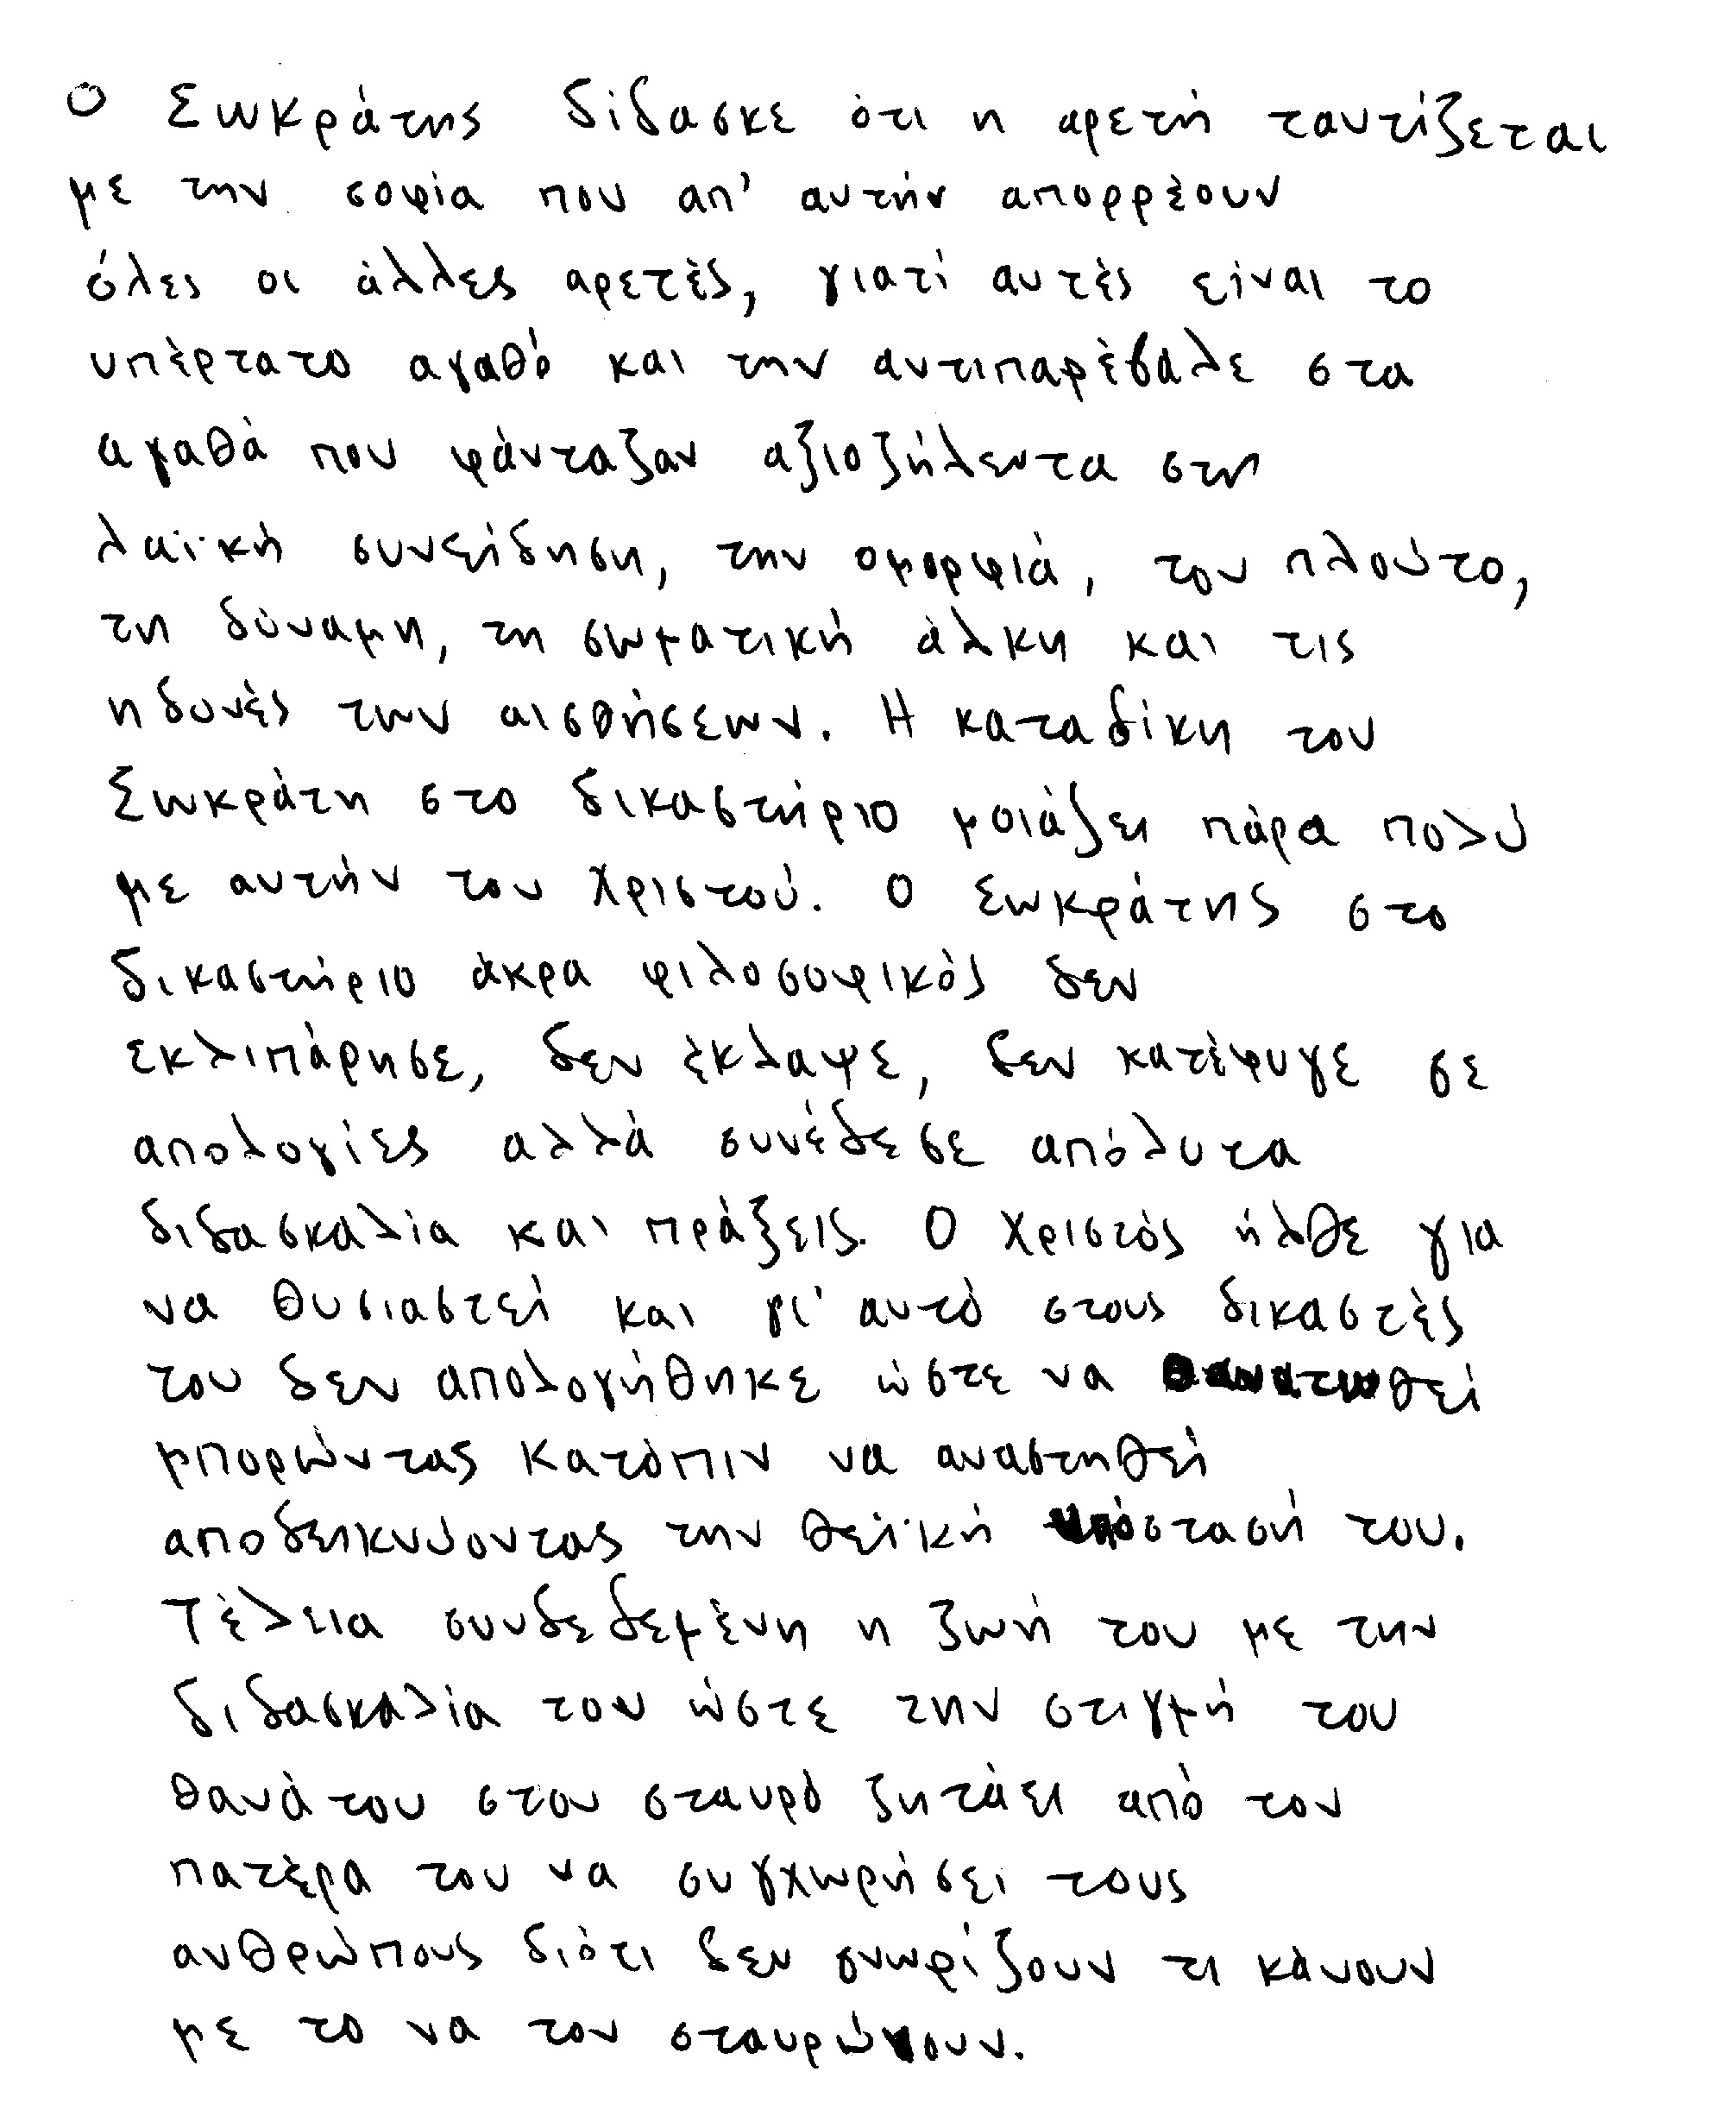 Ο Σωκράτης δίδασκε ότι η αρετή ταυτίζεται
με την σοφία που απ' αυτήν απορρέουν
όλες οι άλλες αρετές, γιατί αυτές είναι το
υπέρτατο αγαθό και την αντιπαρέβαλε στα
αγαθά που φάνταζαν αξιοζήλευτα στη
λαϊκή συνείδηση, την ομορφιά, τον πλούτο,
τη δύναμη, τη σωματική άλκη και τις
ηδονές των αισθήσεων. Η καταδίκη του
Σωκράτη στο δικαστήριο μοιάζει πάρα πολύ
με αυτήν του Χριστού. Ο Σωκράτης στο
δικαστήριο άκρα φιλοσοφικός δεν
εκλιπάρησε, δεν έκλαψε, δεν κατέφυγε σε
απολογίες αλλά συνέδεσε απόλυτα
διδασκαλία και πράξεις. Ο Χριστός ήλθε για
να θυσιαστεί και γι' αυτό στους δικαστές
του δεν απολογήθηκε ώστε να θανατωθεί
μπορώντας κατόπιν να αναστηθεί
αποδεικνύοντας την θεϊκή υπόστασή του.
Τέλεια συνδεδεμένη η ζωή του με την
διδασκαλία του ώστε την στιγμή του
θανάτου στον σταυρό ζητάει από τον
πατέρα του να συγχωρήσει τους
ανθρώπους διότι δεν γνωρίζουν τι κάνουν
με το να τον σταυρώνουν.